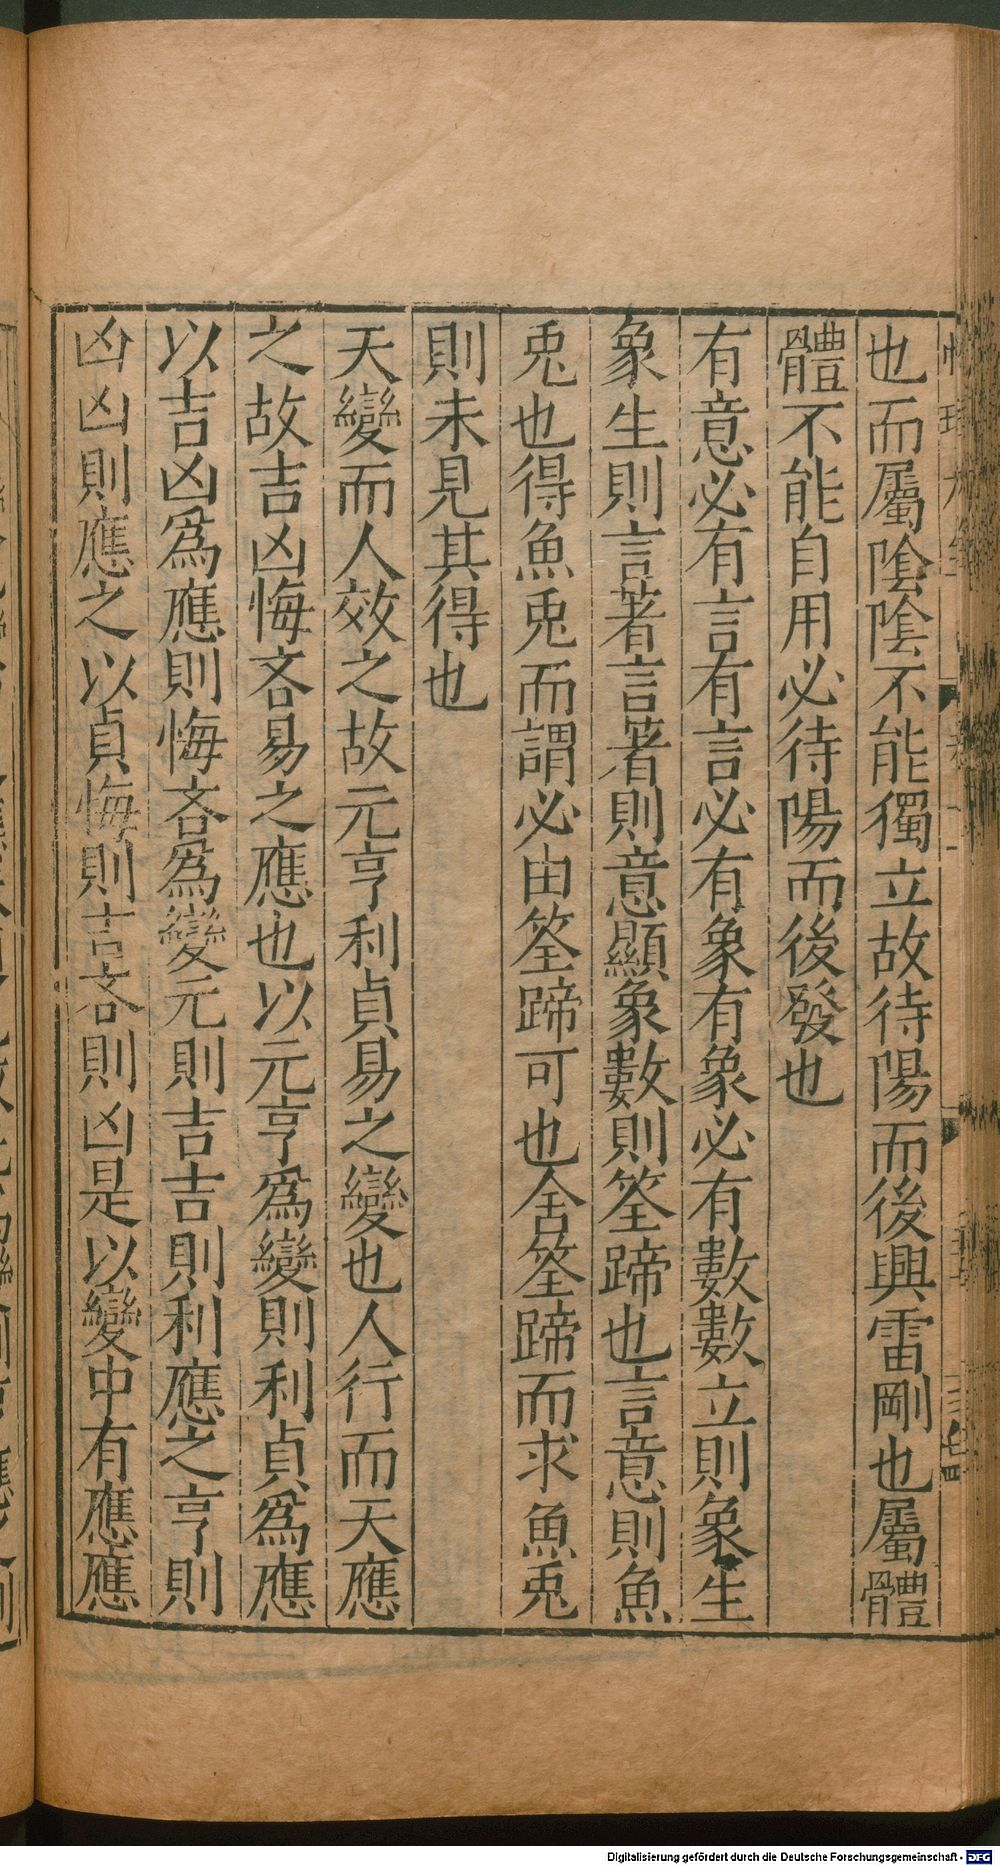 也而屬陰陰不能獨立故待陽而後興雷剛也屬體
體不能自用必待陽而後發也
有意必有言有言必有象有象必有數數立則象生
象生則言著言著則意顯象數則筌蹄也言意則魚
兎也得魚兎而謂必由筌蹄可也舍筌蹄而求魚兎
則未見其得也
天變而人效之故元亨利貞易之變也人行而天應
之故吉凶悔吝易之應也以元亨爲變則利貞爲應
以吉凶爲應則悔吝爲變元則吉吉則利應之亨則
凶凶則應之以貞悔則吉吝則凶是以變中有應應
Digitalisierung gefördert durch die Deutsche Forschungsgemeinschaft - DFG